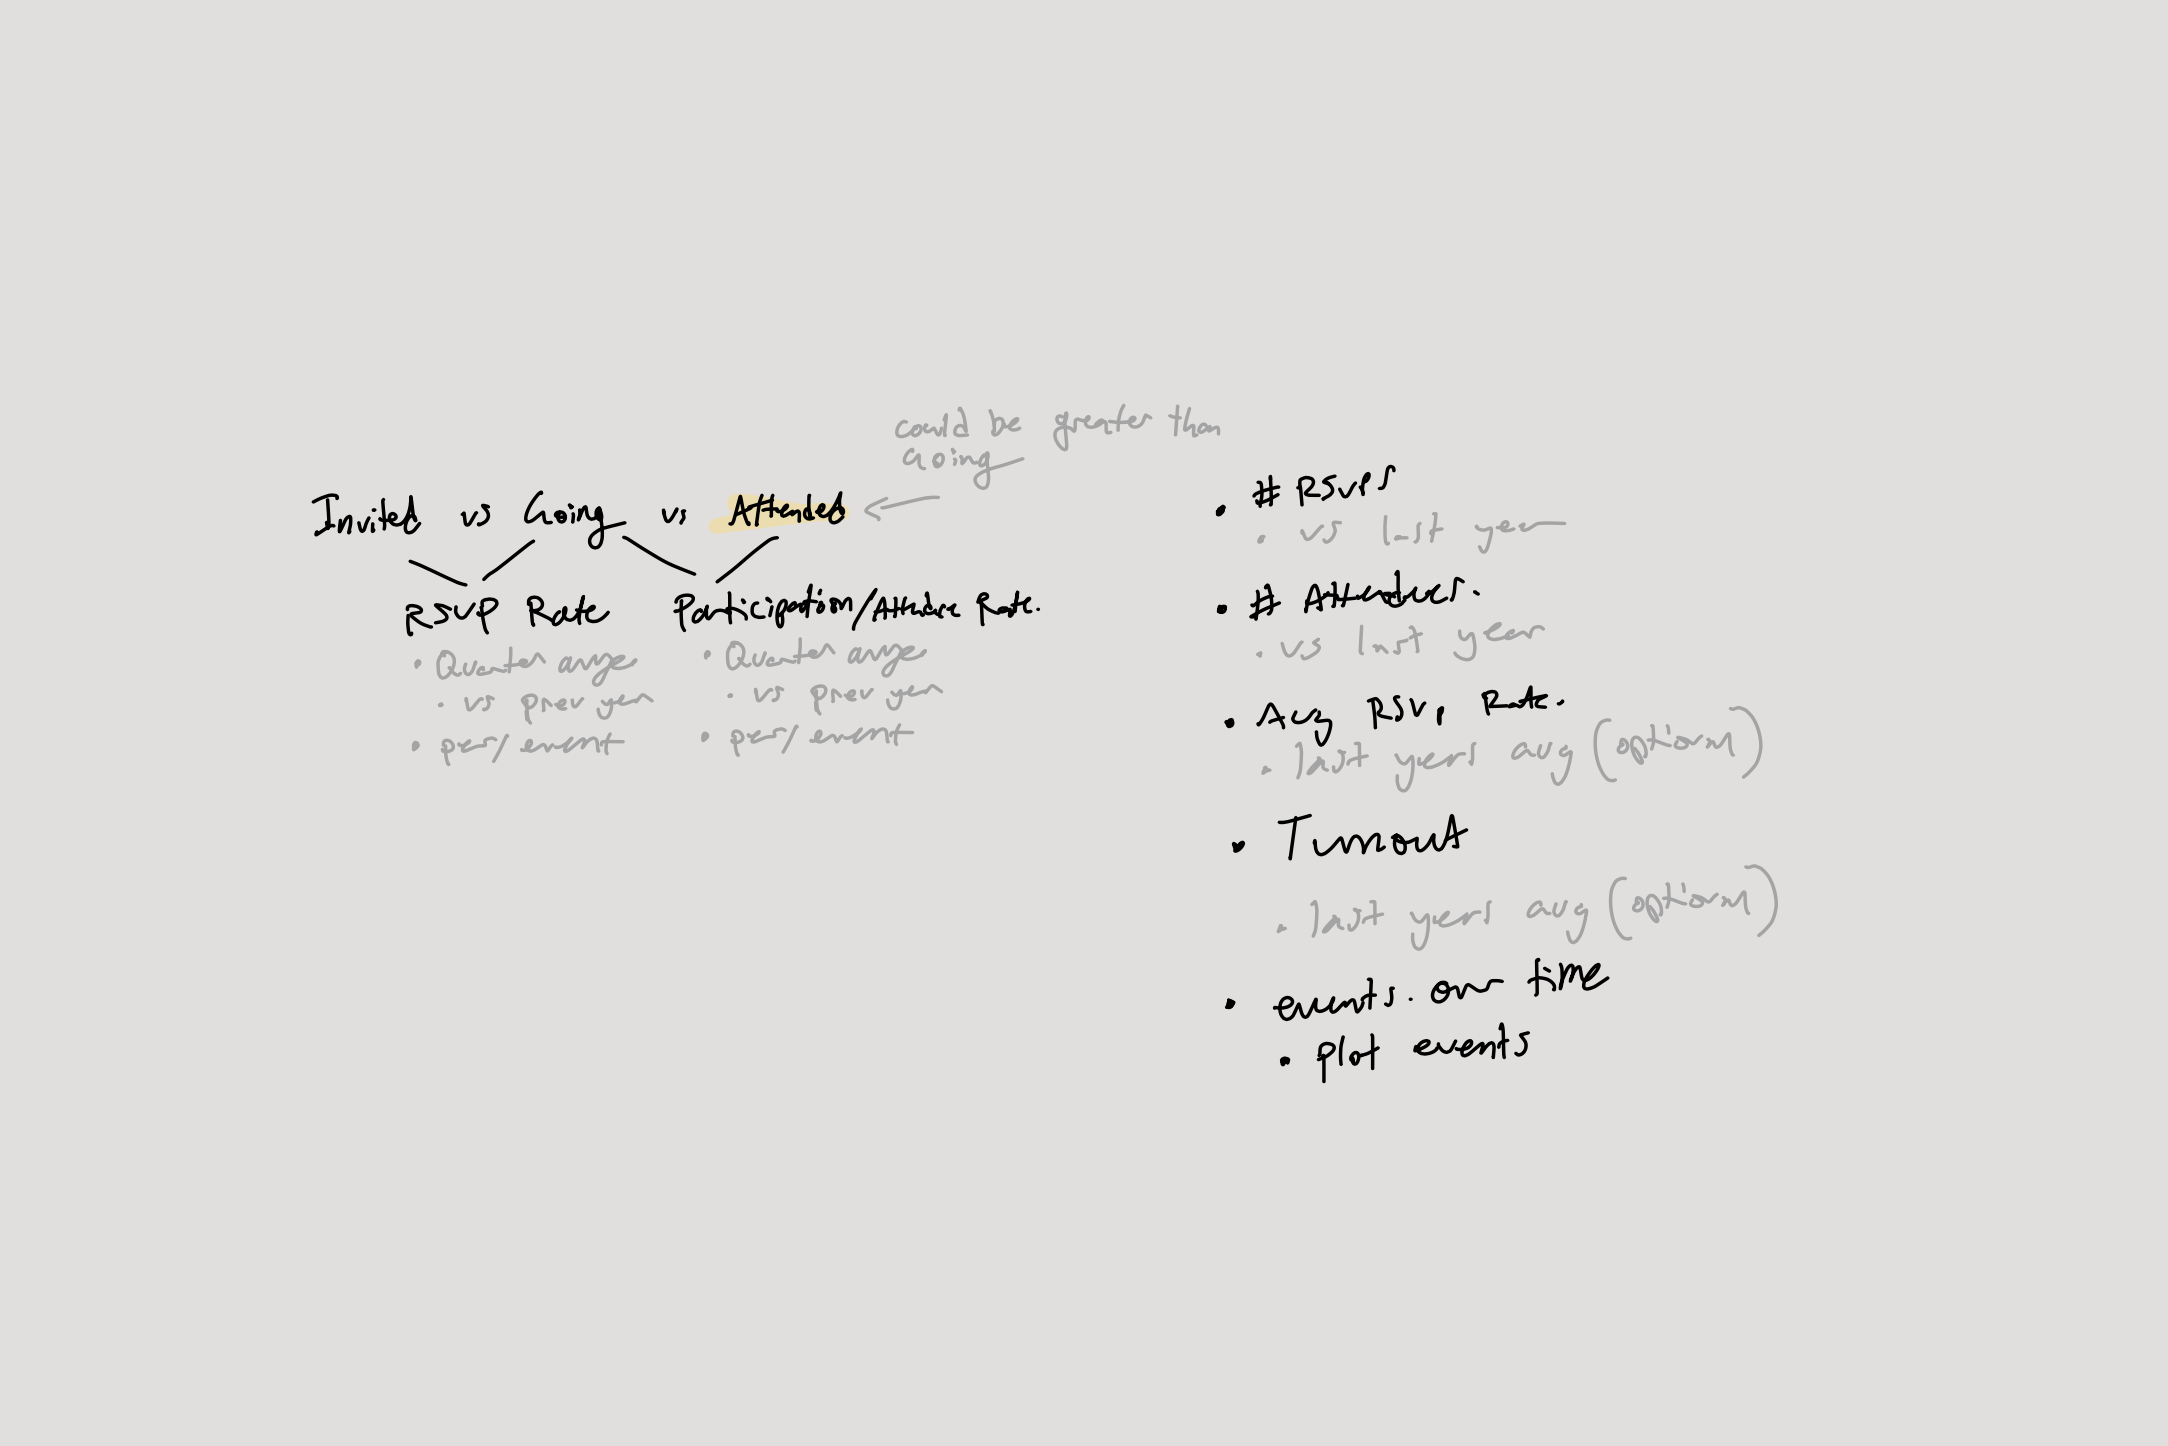 could be greater than
Going
Invited vs Going vs Attended
RSVP Rate
• Quarter
• vs prev year
• per/event
Participation/Attendance Rate.
• Quarter
• vs prev year
• per/event
• # RSVPs
• vs last year
• # Attendees.
• vs last year
• Avg RSVP Rate.
• last years avg (optional)
• Turnout
• last years avg (optional)
• events. over time
• plot events